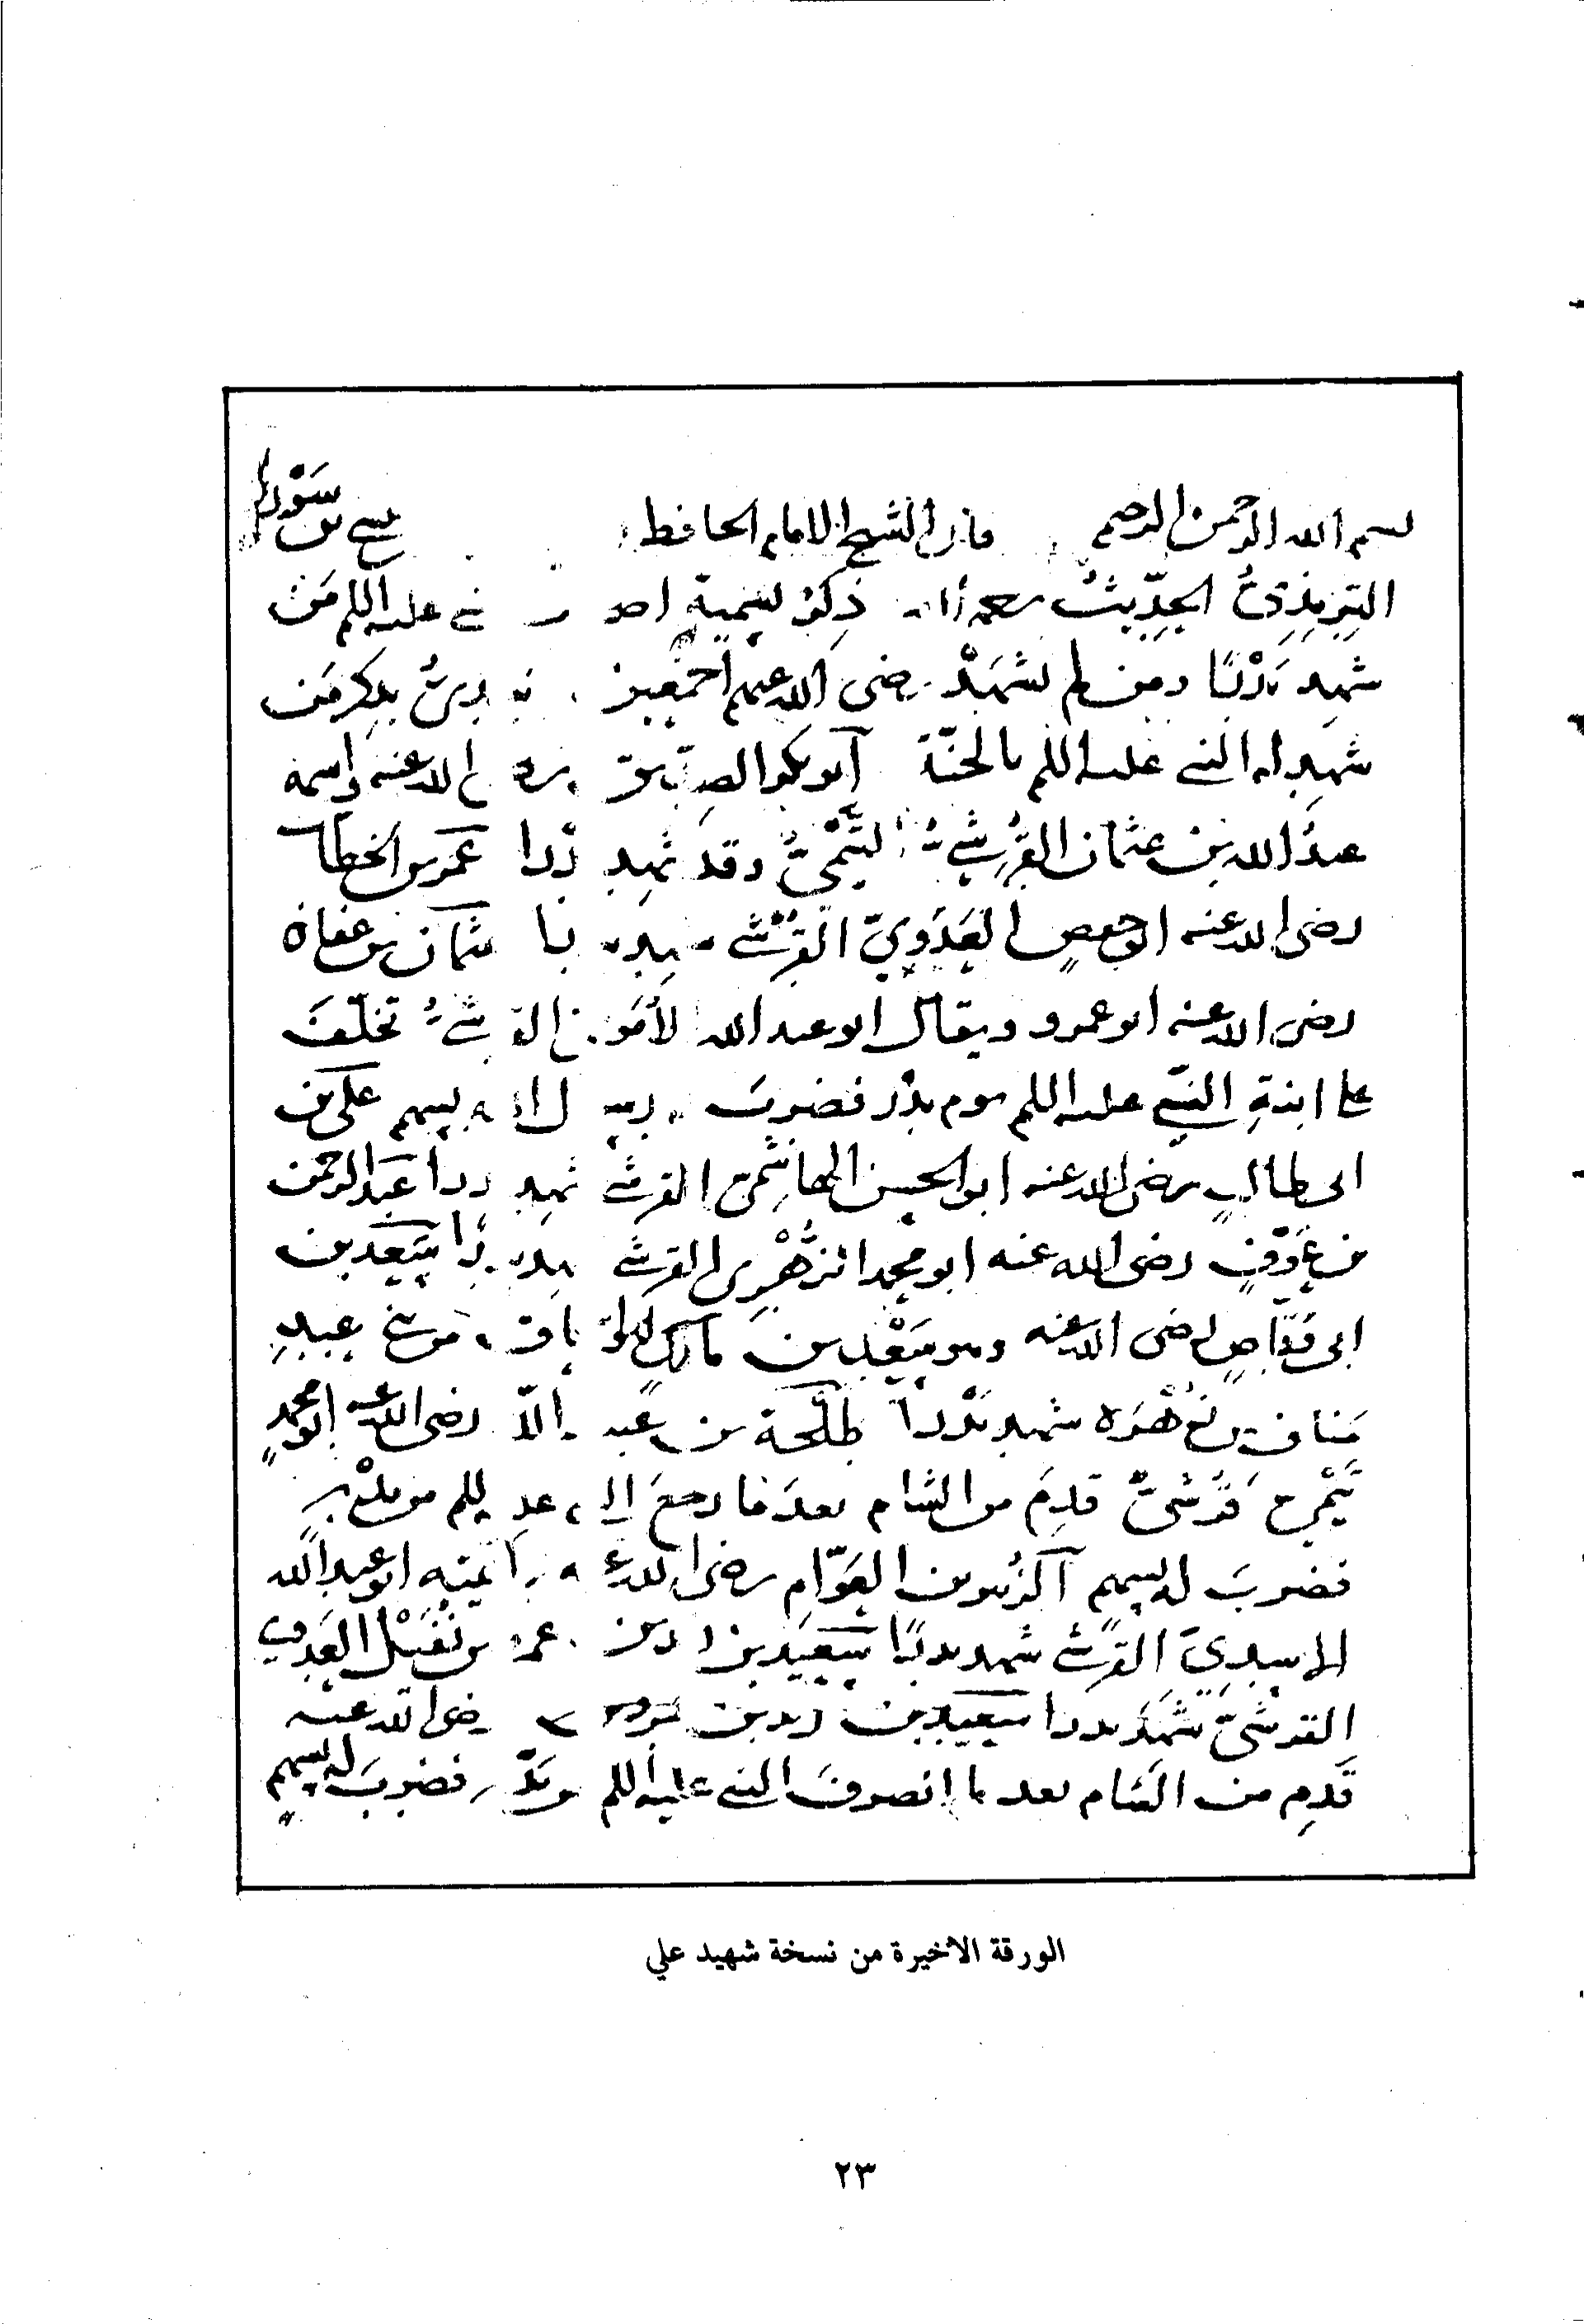 بسم الله الرحمن الرحيم قال الشيخ الامام الحافظ عيسى بن سورة
الترمذيُّ الحديث رحمه الله ذكر تسمية اصحا النبي عليه اللم مَن
شهد بَدْرًا ومن لم يشهَدْ رضى الله عنهم اجمعين بدئ بذكر مَن
شهد له النبي عليه اللم بالجنّة أبو بكر الصدّيق رضى الله عنه واسمه
عبدُ الله بن عثمان القُرشيُّ التَّيْميُّ وقد شهد بدرا عمر بن الخطاب
رضى الله عنه ابو حفصٍ العَدَوِيّ القرشي شهد بدرا عثمان بن عفان
رضى الله عنه ابو عمرو ويقال ابو عبد الله الأموي القرشيُّ تخلّفَ
على ابنةِ النبيّ عليه اللم يوم بدْر فضربَ رسول الله له بسهم علي بن
ابى طالبٍ رضى الله عنه ابو الحسن الهاشمي القرشي شهد بدرا عبد الرحمن
بن عَوْفٍ رضى الله عنه ابو محمد الزُّهْرِي القرشي شهد بدرا سَعد بن
ابى وقّاصٍ رضى الله عنه وهو سَعْد بن مالك من عبد
مَناف بن زُهْرَه شهد بَدْرا طلْحَة بن عُبيد الله رضى الله عنه ابو محمدٍ
تَيْمي قُرَشيٌّ قدِمَ من الشام بعدَ ما رجعَ النبي عليه اللم من بدْرٍ
فضربَ له بسهم الزُبير بن العَوّامِ رضى الله عنه وكنيته ابو عبد الله
الاسديّ القرشي شهد بدرًا سَعيد بن زيد بن عمرو بن نُفَيْل العَدوي
القرشيّ شهد بدرا سعيد بن زيد بن رضى الله عنه
قَدِم من الشام بعد ما انصرفَ النبي عليه اللم من بدْر فضربَ له بسهمٍ
الورقة الأخيرة من نسخة شهيد علي
٢٣